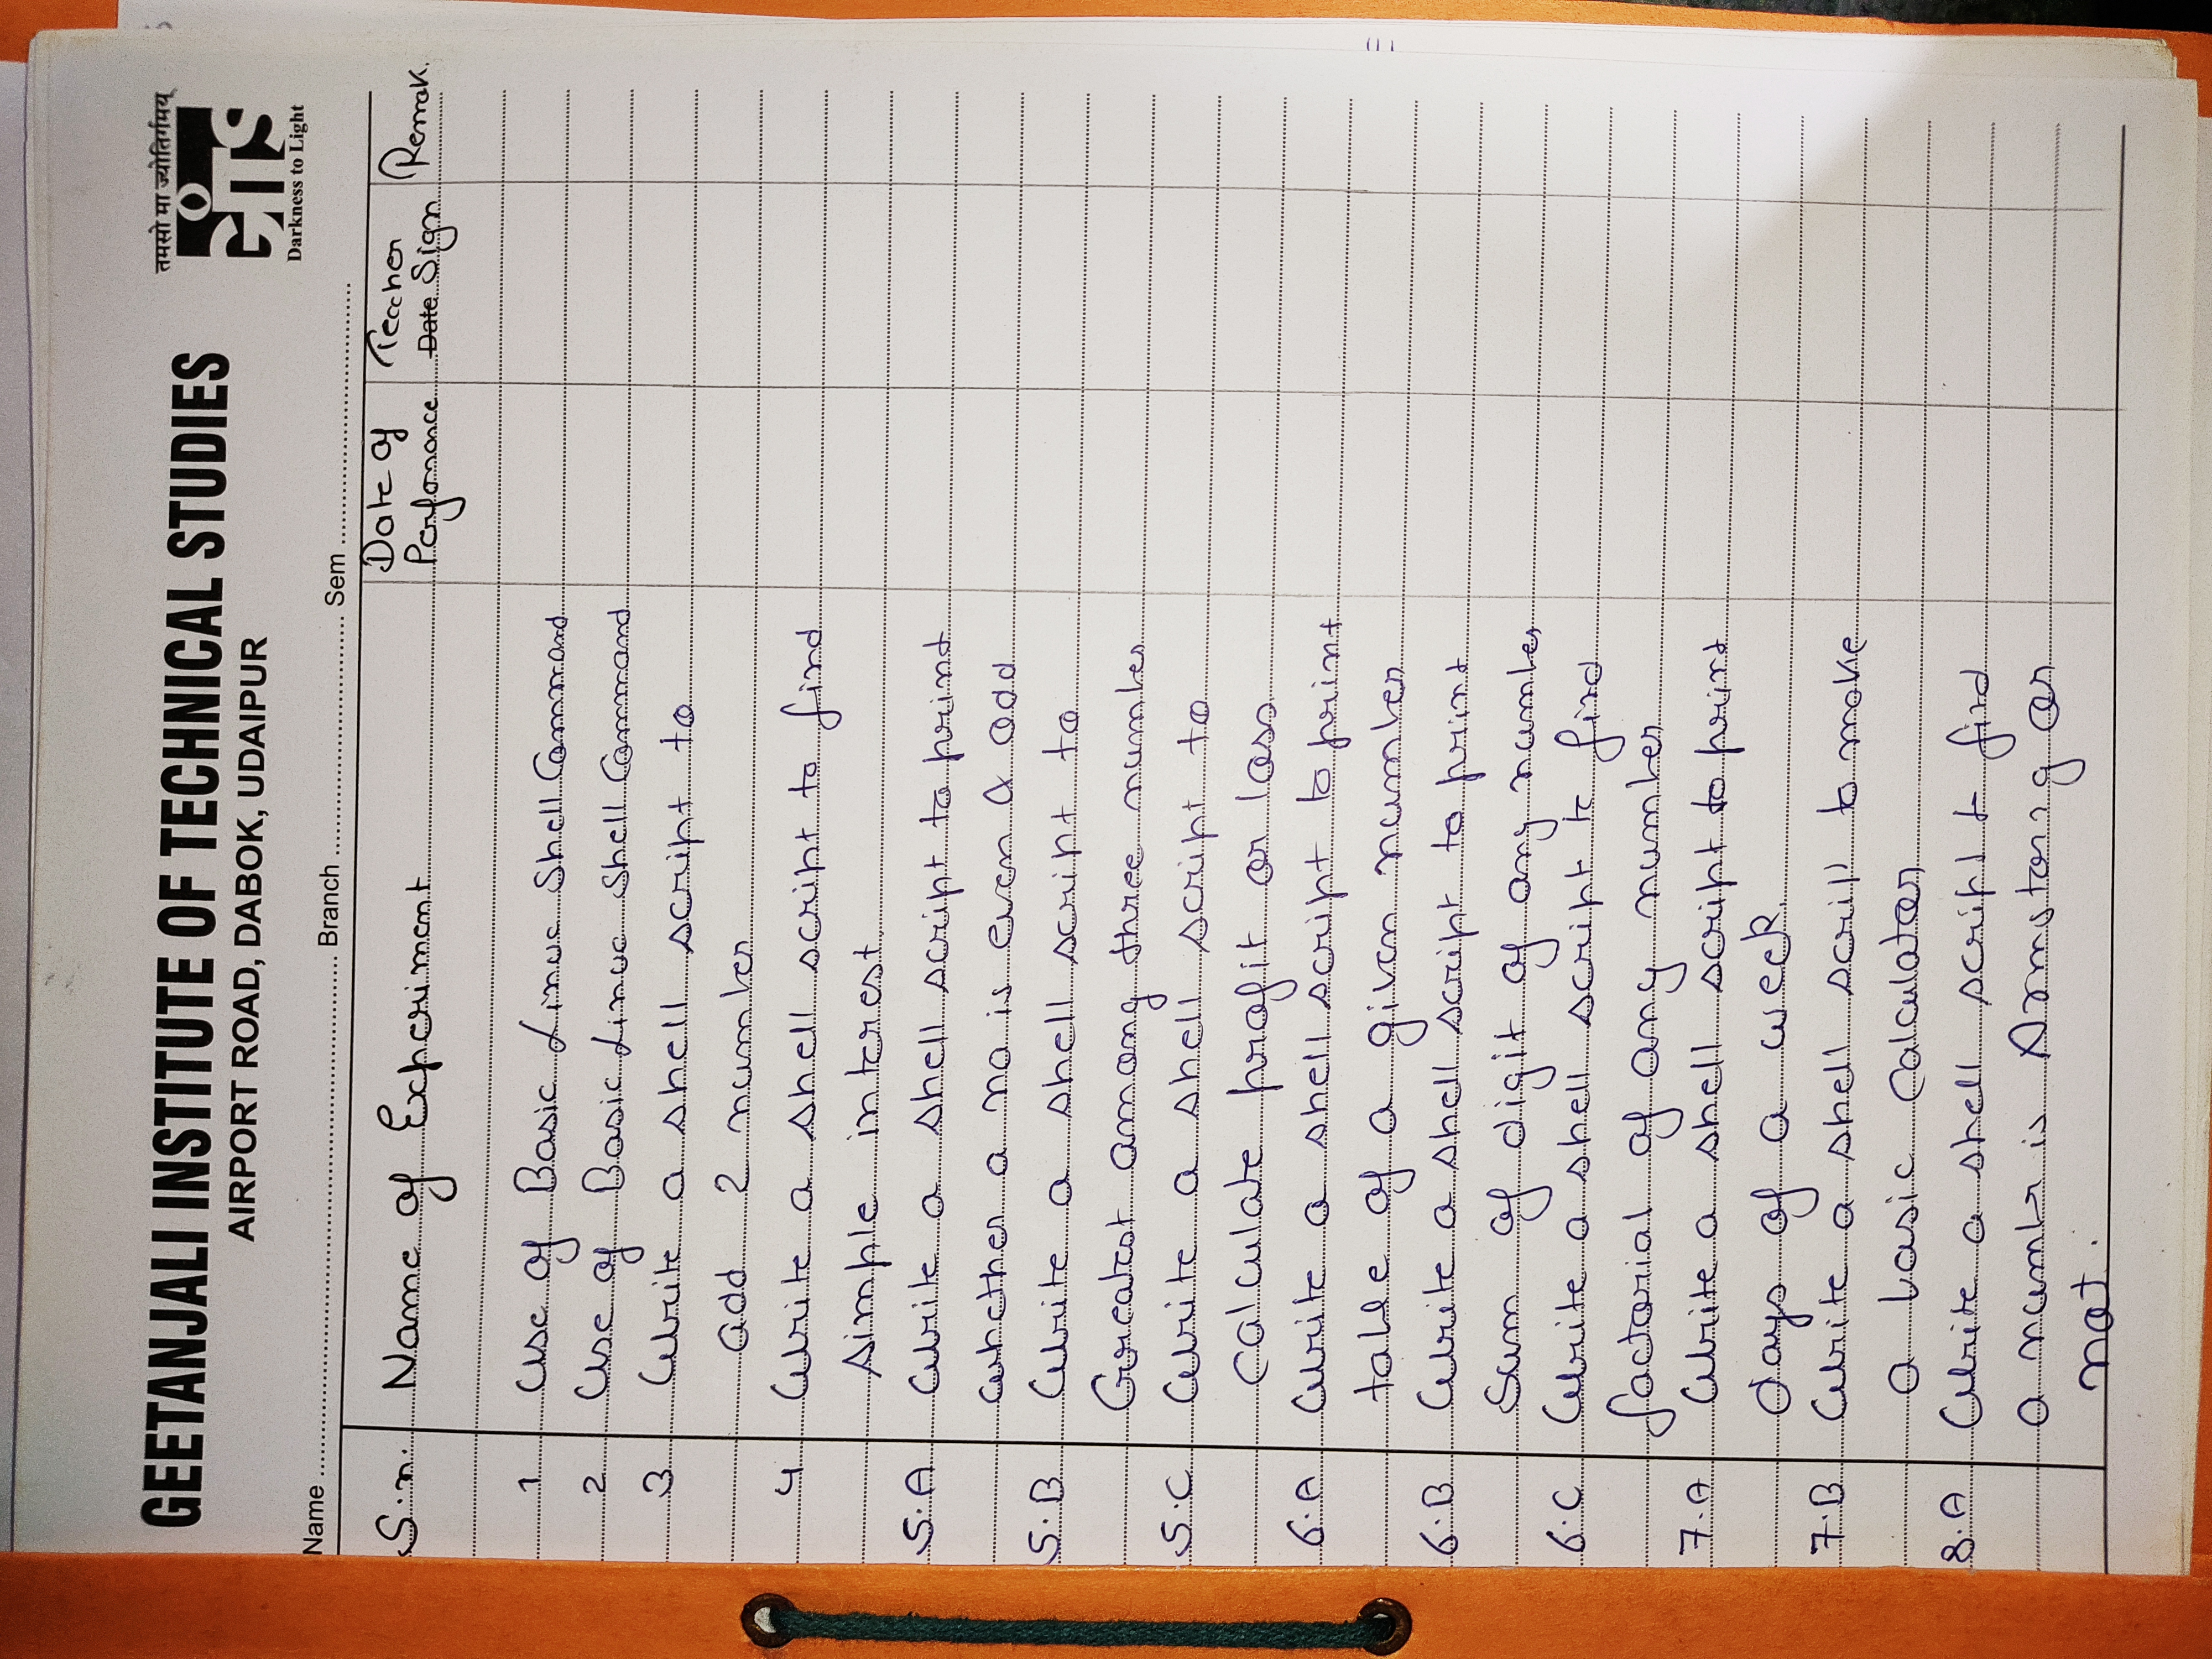 GEETANJALI INSTITUTE OF TECHNICAL STUDIES
AIRPORT ROAD, DABOK, UDAIPUR
तमसो मा ज्योतिर्गमय्
GITS
Darkness to Light
Name ........ Branch ........ Sem ........
S.n. Name of Experiment Date of Perfomance Teacher Date Sign Remak.
1 Use of Basic Linux Shell Command
2 Use of Basic Linux Shell Command
3 Write a shell script to
add 2 number
4 Write a shell script to find
simple interest.
5.A Write a shell script to print
whether a no is even & odd
5.B Write a shell script to
Greatest among three number
5.C Write a shell script to
calculate profit or loss.
6.A Write a shell script to print
table of a given number
6.B Write a shell script to print
Sum of digit of any number
6.C Write a shell script to find
factorial of any number
7.A Write a shell script to print
days of a week.
7.B Write a shell script to make
a basic calculator
8.A Write a shell script to find
a numbr is Armstorng or
not.